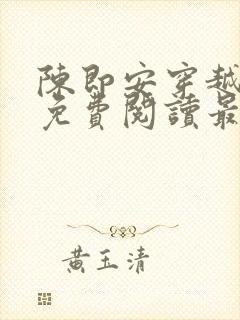 陳即安穿越
免費閱讀最
黃玉清